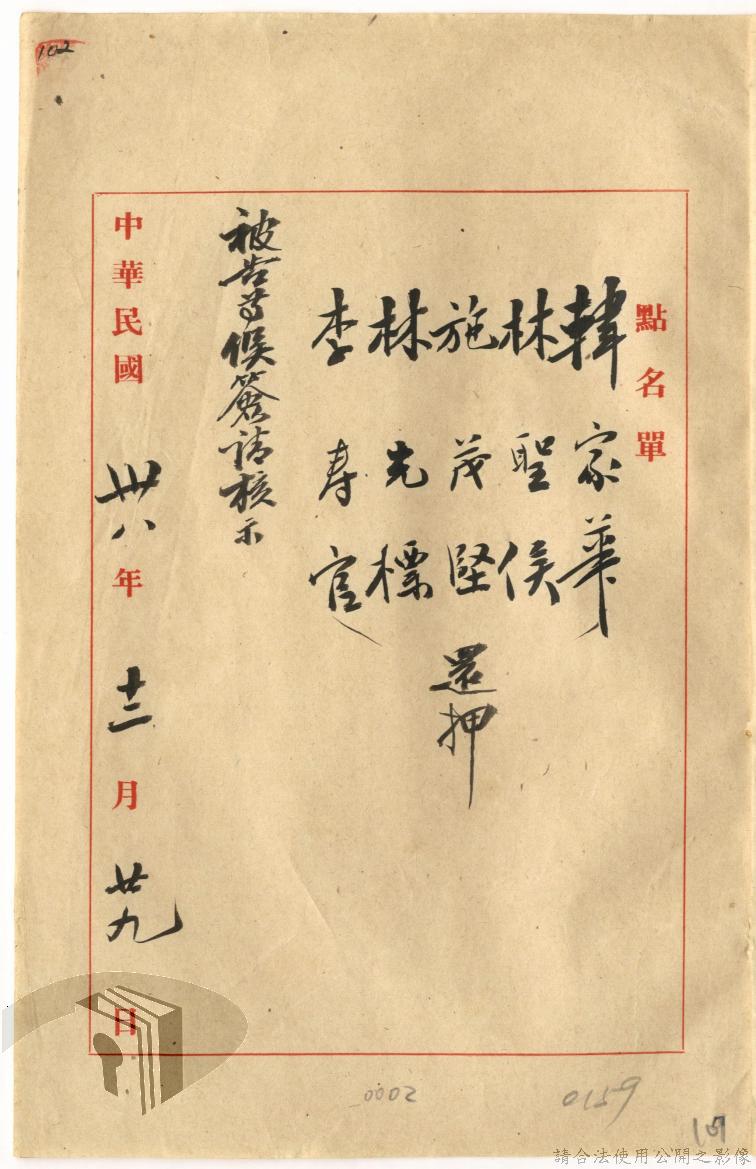 102
點名單
韓家華
林聖侯
施茂堅 還押
林先標
李寿官
被告等候簽請核示
中華民國卅八年十二月廿九日
0002
0159
請合法使用公開之影像